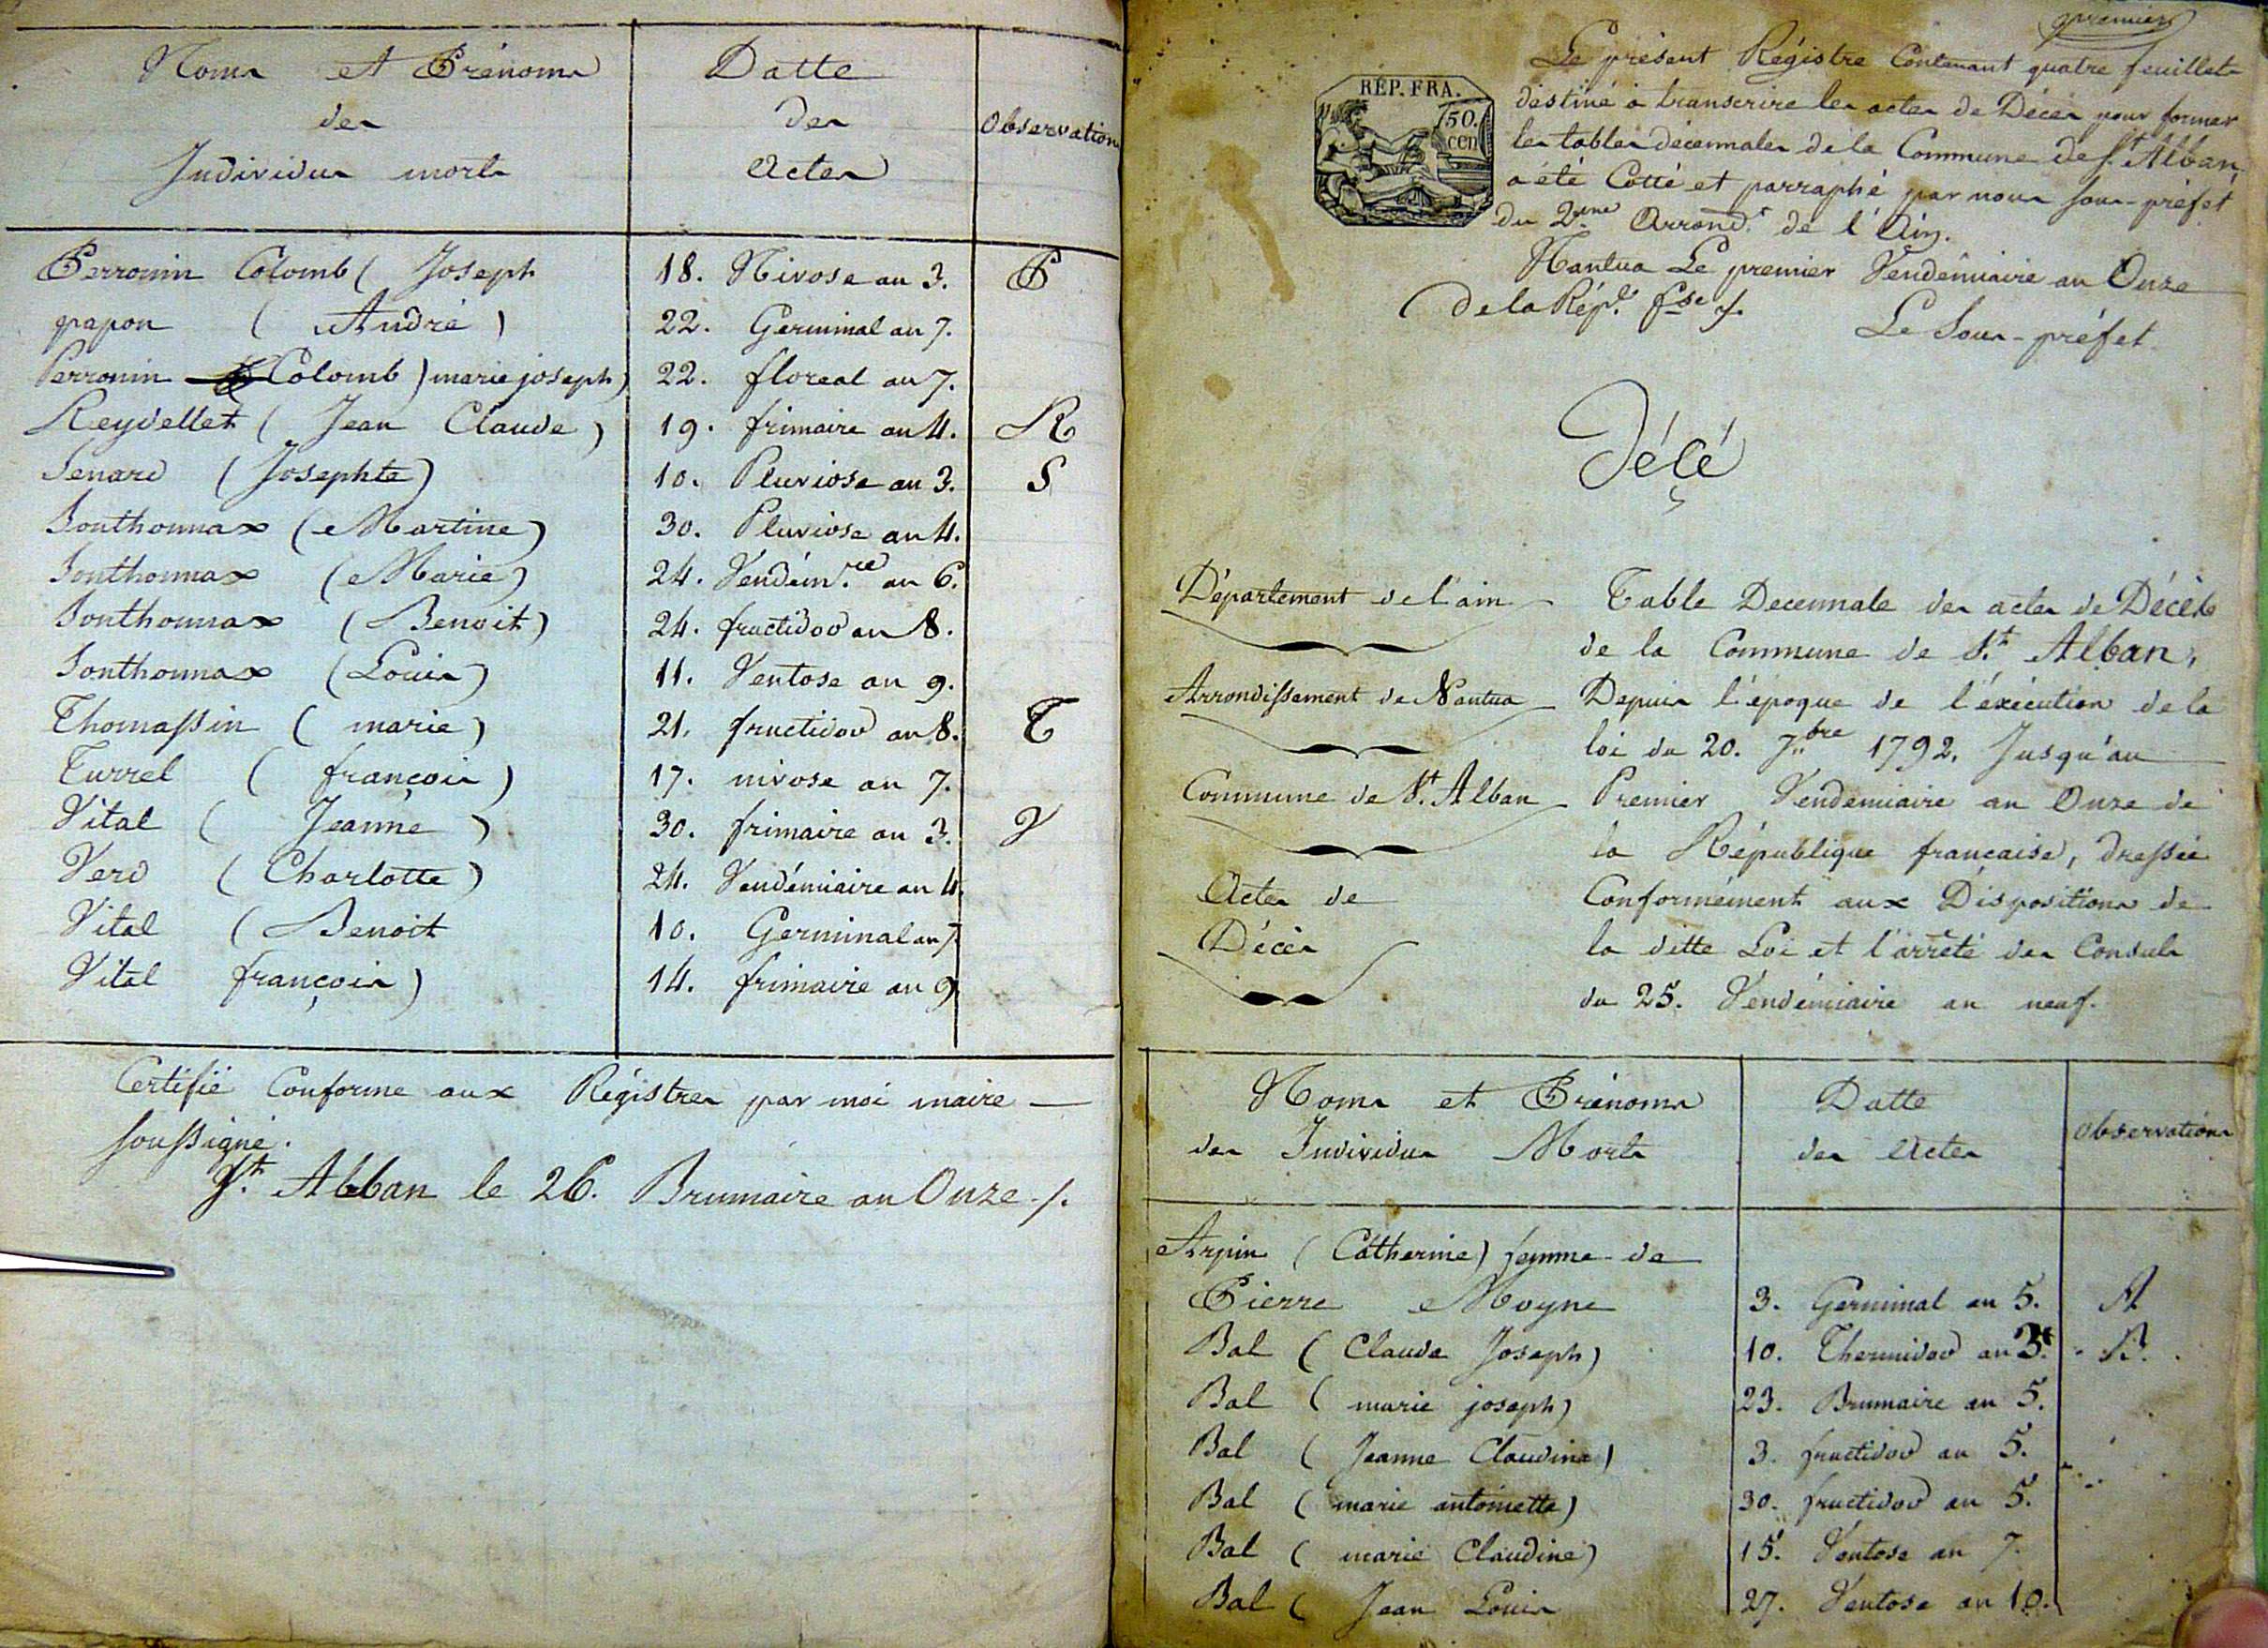 Noms et Prénoms
des
Individus morts
Datte
des
Actes
Observation
Perronin Colomb ( Joseph 18. Nivose an 3. P
papon ( André ) 22. Germinal an 7.
Perronin Colomb ) marie joseph ) 22. floreal an 7.
Reydellet ( Jean Claude ) 19. frimaire an 4. R
Senard ( Josephte ) 10. Pluviose an 3. S
Sonthonnax ( Martine ) 30. Pluviose an 4.
Sonthonnax ( Marie ) 24. Vendém.re an 6.
Sonthonnax ( Benoit ) 24. fructidor an 8.
Sonthonnax ( Louis ) 11. Ventose an 9.
Thomassin ( marie ) 21. fructidor an 8. T
Turrel ( françois ) 17. nivose an 7.
Vital ( Jeanne ) 30. frimaire an 3. V
Verd ( Charlotte ) 24. Vendémiaire an 4.
Vital ( Benoit 10. Germinal an 7.
Vital françois ) 14. frimaire an 9
Certifié Conforme aux Régistres par moi maire
soussigné.
St. Alban le 26. Brumaire an Onze ./.
premier
Le présent Régistre Contenant quatre feuillets
déstiné à transcrire les actes de Décès pour former
les tables décennales de la Commune de St. Alban,
a été Cotté et parraphé par nous sous-préfet
du 2eme Arrond.t de l'Ain.
Nantua Le premier Vendémiaire an Onze
de la Rép.e fse ./.
Le Sous-préfet
RÉP. FRA.
50.
cen
Déçé
Département de l'ain
Arrondissement de Nantua
Commune de St. Alban
Actes de
Décès
Table Decennale des actes de Décès
de la Commune de St. Alban,
Depuis l'époque de l'éxécution de la
loi du 20. 7.bre 1792. Jusqu'au
Premier Vendemiaire an Onze de
la République francaise, dressée
Conformément aux Dispositions de
la ditte Loi et l'arrêté des Consuls
du 25. Vendémiaire an neuf.
Noms et Prénoms
des Individus Morts
Datte
des Actes
Observations
Arpin ( Catherine ) femme de
Pierre Moyne 3. Germinal an 5. A
Bal ( Claude Joseph ) 10. Thermidor an 3. B.
Bal ( marie joseph ) 23. Brumaire an 5.
Bal ( Jeanne Claudine ) 3. fructidor an 5.
Bal ( marie antoinette ) 30. fructidor an 5.
Bal ( marie Claudine ) 15. Ventose an 7.
Bal ( Jean Louis 27. Ventose an 10.